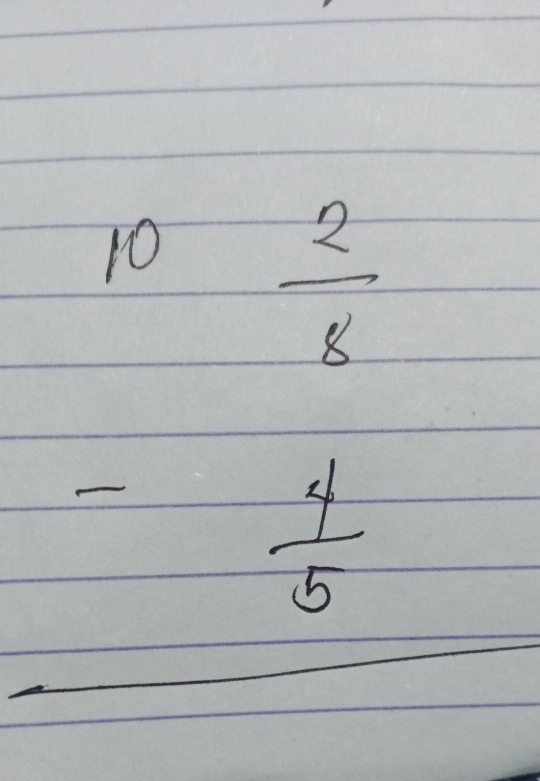 10 2/8
- 4/5